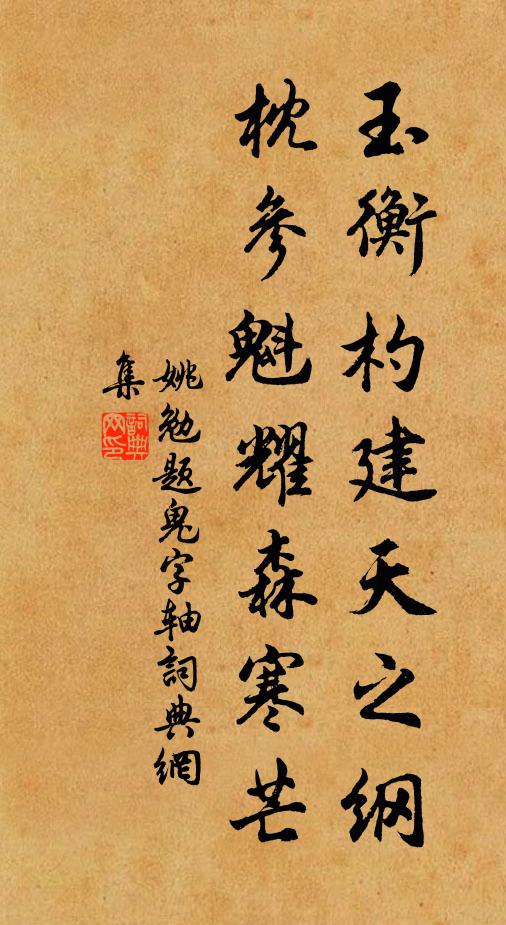 玉衡杓建天之纲
枕参魁耀森寒芒
姚勉题鬼字轴詞典網
集
詞典网印